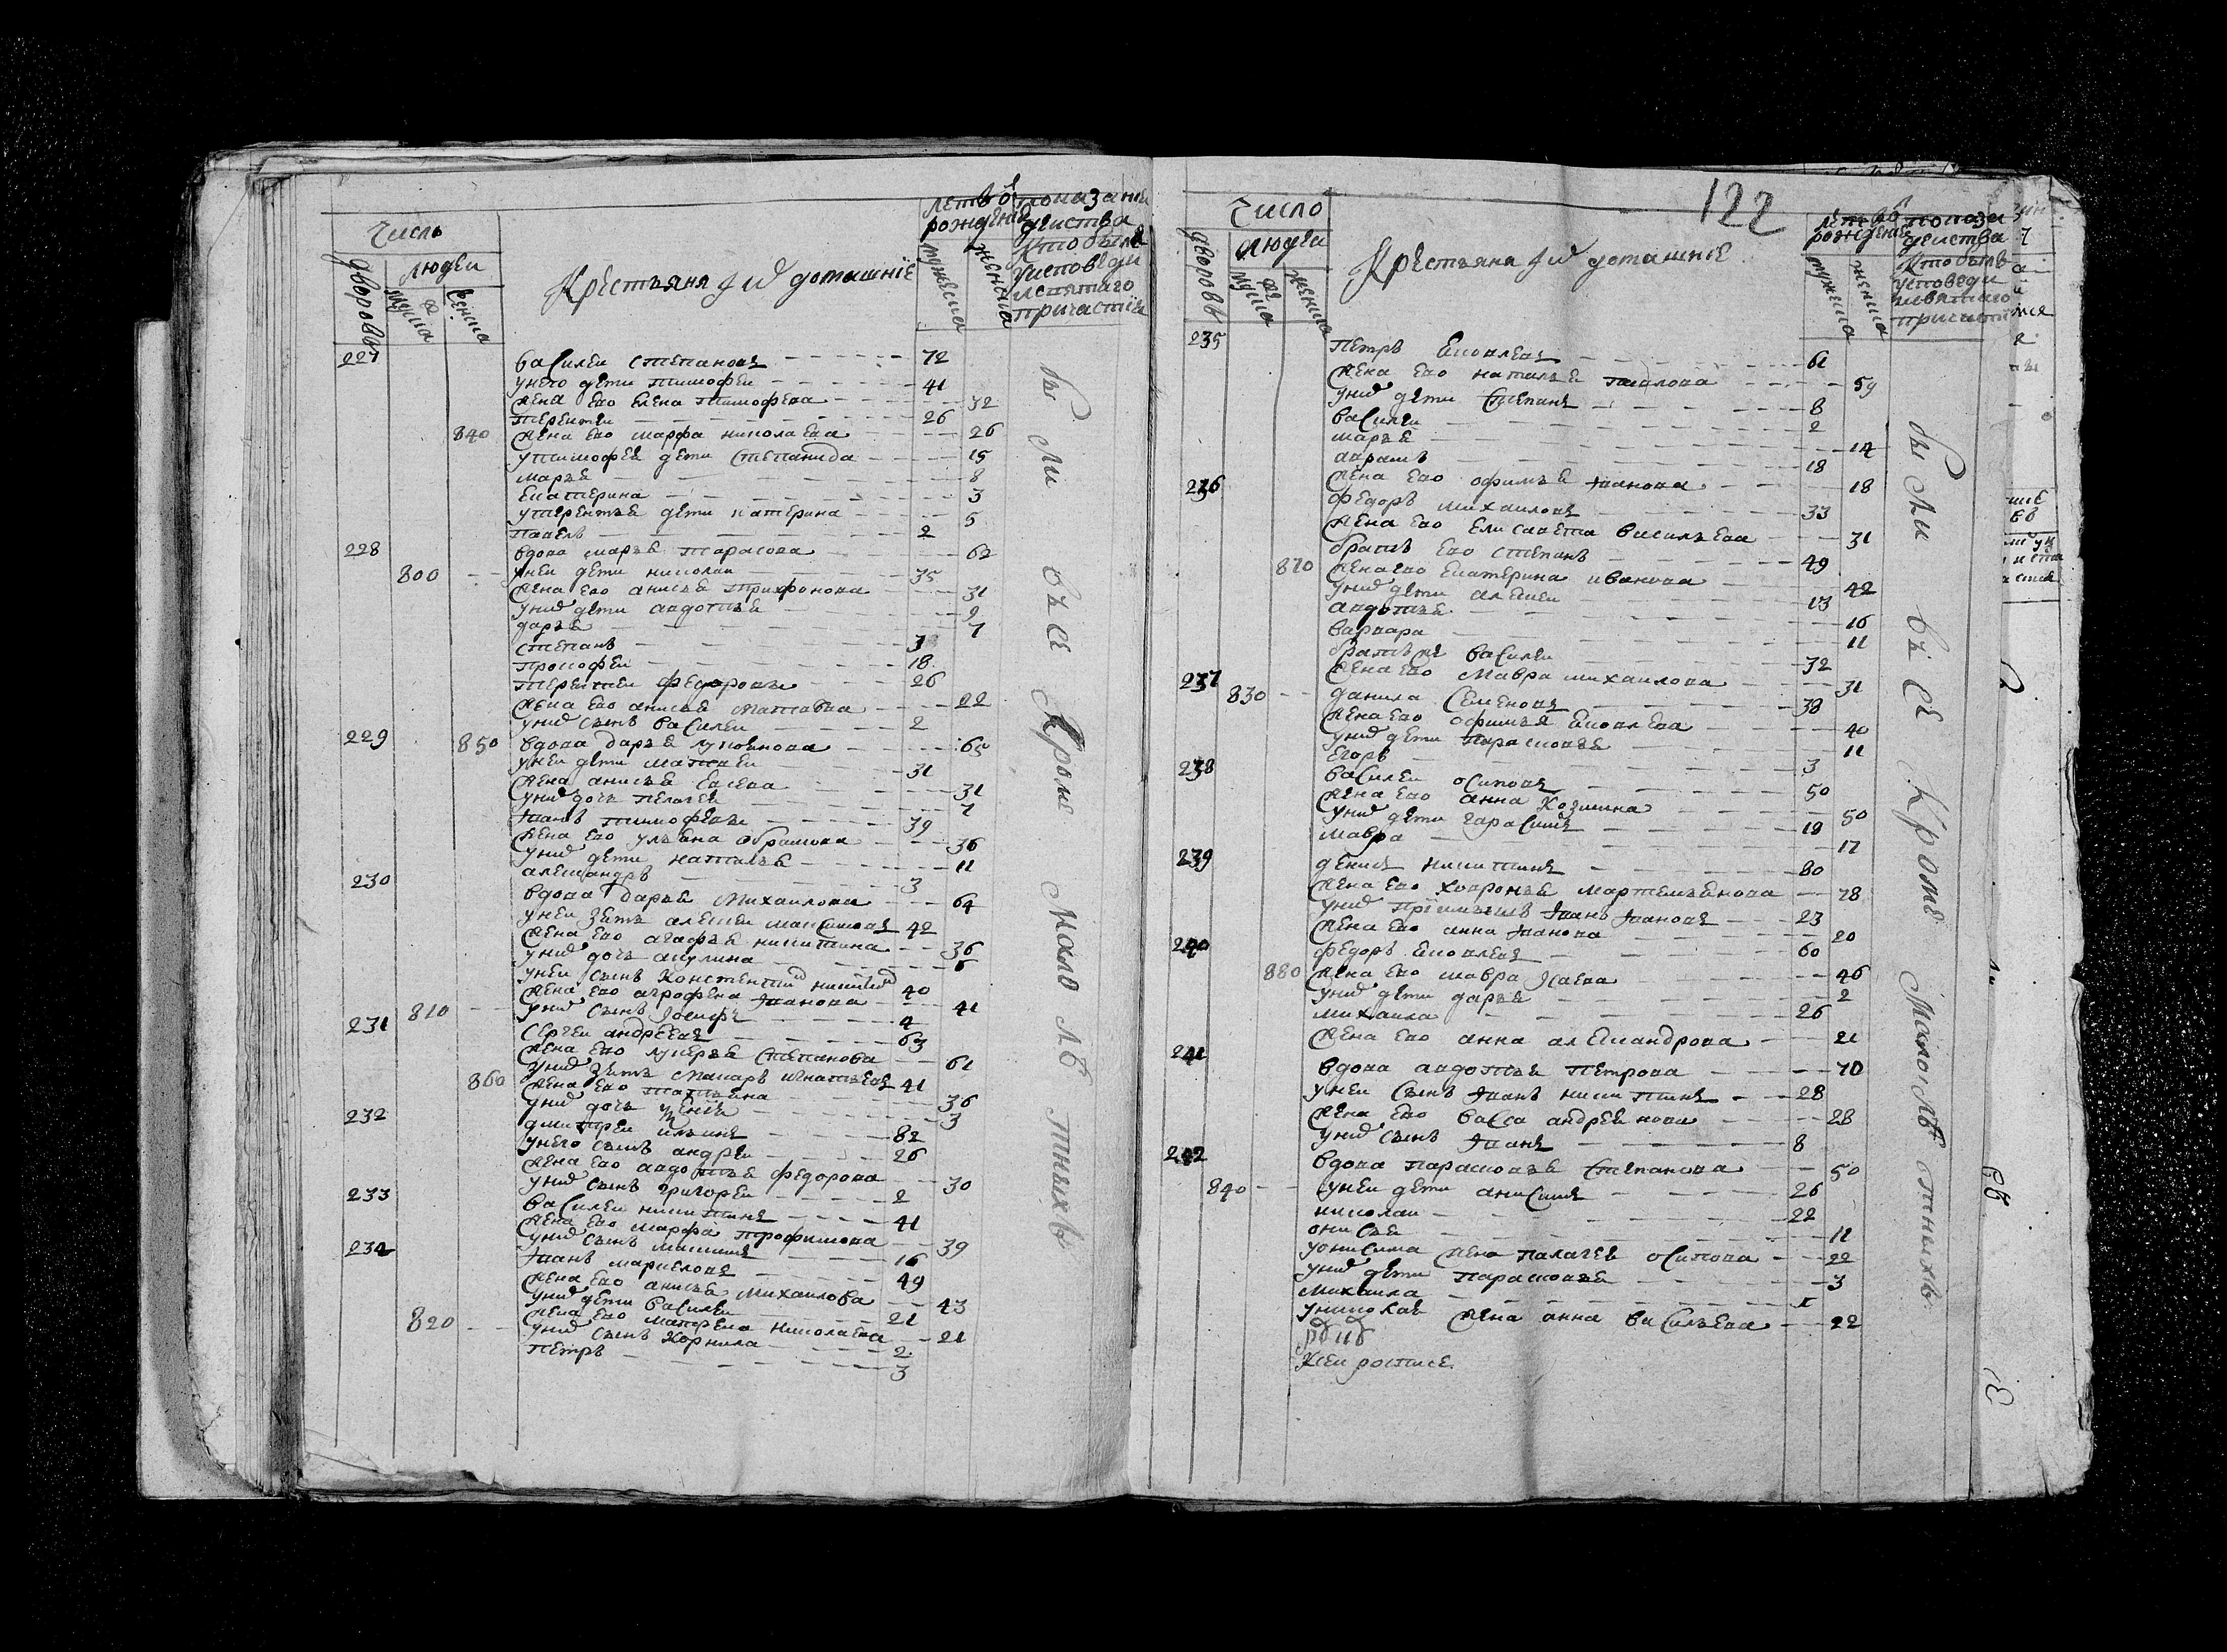 Число
людеи
дворовъ
мужеска
женска
Крестьяня и домашніе
летъ ѿ рожденія
мужеска
женска
показаніе действа
кто былъ
у исповеди
и святаго
причастія
227 василеи степановъ 72
у него дети тимофеи 41
жена ево елена тимофева 32
терентеи 26
840 жена ево марфа николаева 26
у тимофея дети степанида 15
марья 8
екатерина 3
у терентья дети катерина 5
павелъ 2
228 вдова марья тарасова 62
800 у неи дети николаи 35
жена ево анисья трифонова 31
у них дети авдотья 9
дарья 7
степанъ 3
прокофеи 18
терентеи федоровъ 26
жена ево анисья матвева 22
у них сынъ василеи 2
229 850 вдова дарья лукоянова 65
у неи дети матвеи 31
жена анисья евсева 31
у них дочь пелагея 7
иванъ тимофевъ 39
жена ево ульяна обрамова 36
у них дети наталья 11
александръ 3
230 вдова дарья михаилова 64
у неи зять алексеи максимовъ 42
жена ево агафья никитина 36
у них дочь акулина 6
у неи сынъ константин никитин 40
жена ево аграфена иванова 41
810 у них сынъ иосифъ 4
231 сергеи андреевъ 63
жена ево лукерья степанова 61
у них зять макаръ игнатьевъ 41
860 жена ево татьяна 36
у них дочь ксенья 3
232 дмитреи ильинъ 82
у него сынъ андреи 26
жена ево авдотья федорова 30
у них сынъ григореи 2
233 василеи никитинъ 41
жена ево марфа трофимова 39
у них сынъ максимъ 16
234 иванъ маркеловъ 49
жена ево анисья михаилова 43
у них дети василеи 21
820 жена ево матрена николаева 21
у них сынъ корнила 2
петръ 3
были въ се кроме малолѣтныхъ
122
Число
людеи
дворовъ
мужеска
женска
Крестьяня и домашніе
летъ ѿ рожденія
мужеска
женска
показа действа
кто былъ
у исповеди
и святаго
причастія
235 петръ яковлевъ 61
жена ево наталья павлова 59
у них дети степанъ 8
василеи 2
марья 14
аврамъ 18
жена ево офимья иванова 18
236 федоръ михаиловъ 33
жена ево елисавета васильева 31
братъ ево степанъ 49
870 жена ево екатерина иванова 42
у них дети алексеи 13
авдотья 16
варвара 11
братъ же василеи 32
жена ево мавра михаилова 31
237 830 данила семеновъ 38
жена ево офимья яковлева 40
у них дети парасковья 11
егоръ 3
238 василеи осиповъ 50
жена ево анна козмина 50
у них дети гарасимъ 18
мавра 17
239 денисъ никитинъ 80
жена ево ховронья мартемьянова 78
у них приимышъ иванъ ивановъ 23
жена ево анна иванова 20
240 федоръ яковлевъ 60
880 жена ево мавра исаева 46
у них дети дарья 2
михаила 26
жена ево анна александрова 21
241 вдова авдотья петрова 70
у неи сынъ иванъ никитинъ 28
жена ево васса андреянова 28
у них сынъ иванъ 8
242 вдова парасковья степанова 50
840 у неи дети анисимъ 26
николаи 22
онисья 11
у онисима жена палагея осипова 22
у них дети парасковья 3
михаила 1
у николая жена анна васильева 22
к сеи росписе
были въ се кроме малолѣтныхъ